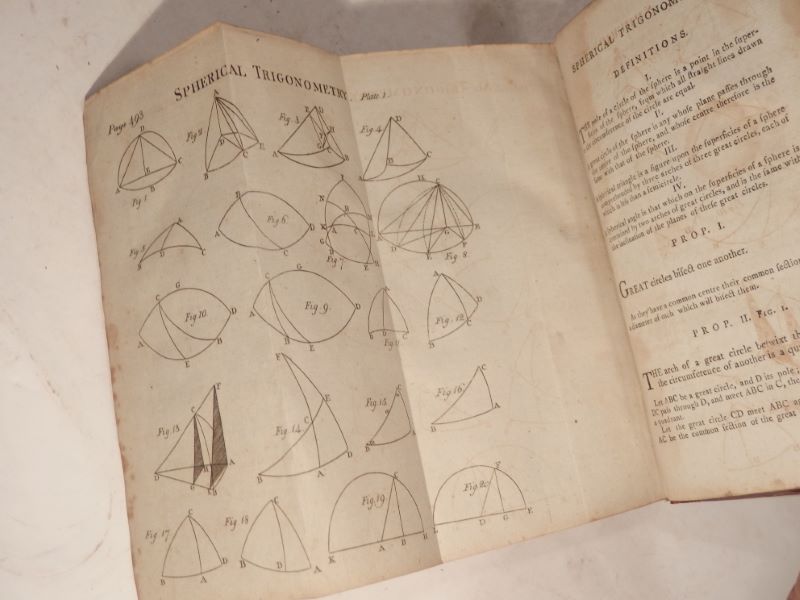 SPHERICAL TRIGONOMETRY
Plate 1.
Page 493
Fig. 1
Fig. 2
Fig. 3
Fig. 4
Fig. 5
Fig. 6.
Fig. 7
Fig. 8
Fig. 10.
Fig. 9.
Fig. 12
Fig. 13
Fig. 14
Fig. 15
Fig. 16
Fig. 17
Fig. 18
Fig. 19.
Fig. 20
SPHERICAL TRIGONOM
DEFINITIONS.
I.
THE pole of a circle of the sphere is a point in the super-
ficies of the sphere, from which all straight lines drawn
circumference of the circle are equal.
II.
great circle of the sphere is any whose plane passes through
the centre of the sphere, and whose centre therefore is the
same with that of the sphere.
III.
spherical triangle is a figure upon the superficies of a sphere
comprehended by three arches of three great circles, each of
which is less than a semicircle.
IV.
spherical angle is that which on the superficies of a sphere is
contained by two arches of great circles, and is the same with
the inclination of the planes of these great circles.
PROP. I.
GREAT circles bisect one another.
As they have a common centre their common section
a diameter of each which will bisect them.
PROP. II. FIG. 1.
THE arch of a great circle betwixt th
the circumference of another is a qu
Let ABC be a great circle, and D its pole;
DC pass through D, and meet ABC in C, the
a quadrant.
Let the great circle CD meet ABC ag
AC be the common section of the great